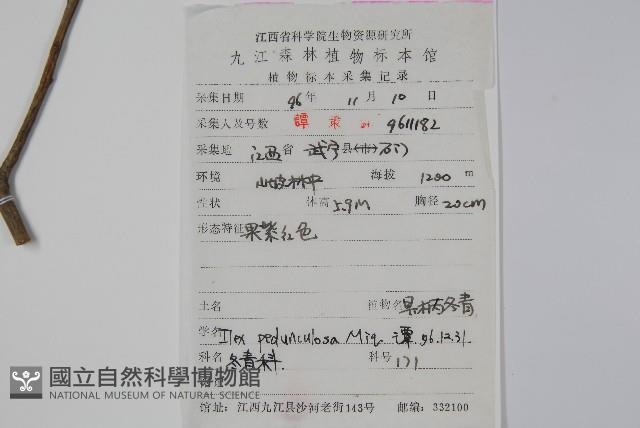 江西省科学院生物资源研究所
九江森林植物标本馆
植物标本采集记录
采集日期 96年 11月 10日
采集人及号数 譚 9611182
采集地 江西省 武宁县(市)石门
环境 山坡林中 海拔 1200 m
性状 体高 5.9M 胸径 20cm
形态特征 果紫红色
土名 植物名 具柄冬青
学名 Ilex pedunculosa Miq. 譚. 96.12.31.
科名 冬青科. 科号 171
國立自然科學博物館
NATIONAL MUSEUM OF NATURAL SCIENCE
馆址:江西九江县沙河老街143号 邮编:332100